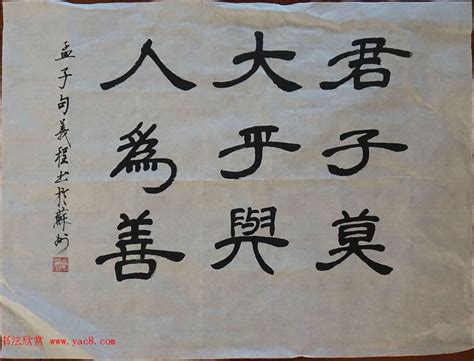 君子莫
大乎與
人為善
孟子句義程书於蘇州
书法欣赏 www.yac8.com